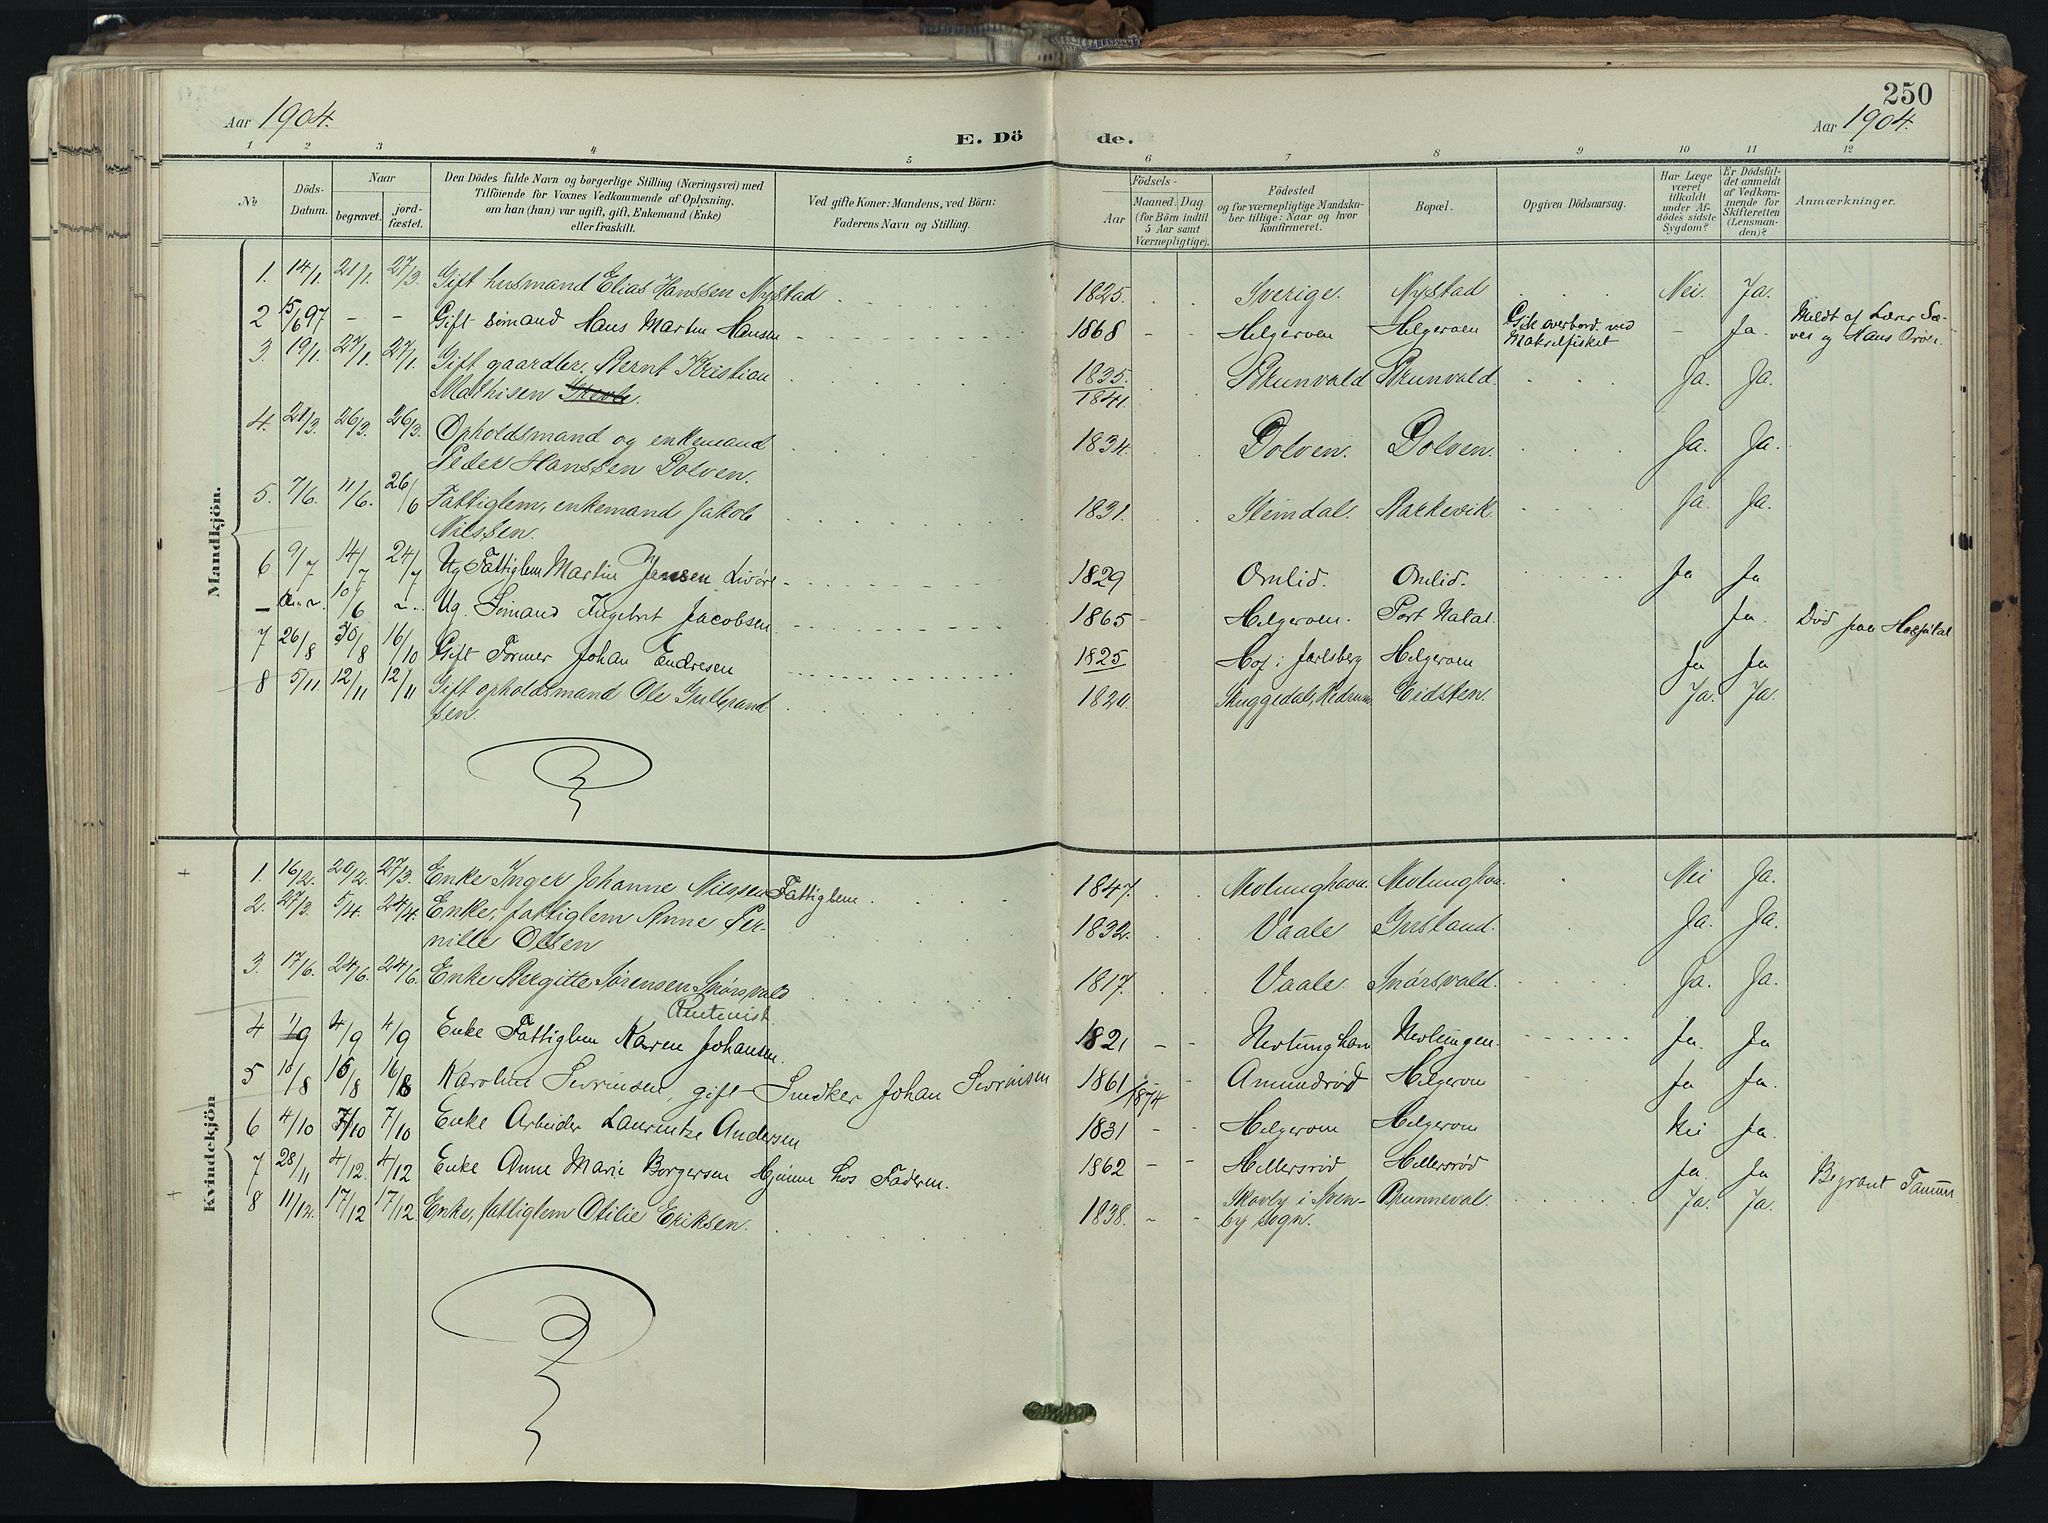 250
Aar 1904.
E. Dö de.
Aar 1904.
1 2 3 4 5 6 7 8 9 10 11 12
№
Döds-Datum.
Naar
begravet.
jord-fæstet.
Den Dödes fulde Navn og borgerlige Stilling (Næringsvei) med
Tilföiende for Voxnes Vedkommende af Oplysning,
om han (hun) var ugift, gift, Enkemand (Enke)
eller fraskilt.
Ved gifte Koner: Mandens, ved Börn:
Faderens Navn og Stilling.
Födsels-
Aar
Maaned. Dag.
(for Börn indtil
5 Aar samt
Værnepligtige).
Födested
og for værnepligtige Mandska-
ber tillige: Naar og hvor
konfirmeret.
Bopæl.
Opgiven Dödsaarsag.
Har Læge
været
tilkaldt
under Af-
dödes sidste
Sygdom?
Er Dödsfal-
det anmeldt
af Vedkom-
mende for
Skifteretten
(Lensman-
den)?
Anmærkninger.
Mandkjön.
1. 14/1. 21/1. 27/3. Gift husmand Elias Hanssen Nystad 1825. Sverige. Nystad Nei. Ja.
2 15/6 97 - - Gift Sømand Hans Martin Hansen 1868 - Helgeroen Helgeroen Gik overbord ved - Ja. Meldt af Lærer Sæ-
Makrelfisket ver og Hans
3. 19/1. 27/1. 27/1. Gift gaardbr. Bernt Kristian 1835. Brunvald Brunvald. Ja. Ja.
Mathisen 1841.
4. 21/3. 26/3. 26/3. Opholdsmand og enkemand 1834. Dolven. Dolven. Ja. Ja.
Peder Hanssen Dolven.
5. 7/6. 11/6. 26/6 Fattiglem, enkemand Jakob 1831. Stemdal. Barkevik. Ja. Ja.
Nilssen.
6 9/7 14/7 24/7 Ug. Fattiglem Martin Jansen 1829 Omlid. Omlid. Ja Ja
- 10/6 Ug. Sømand Ingebret Jacobsen 1865 - Helgeroen. Port Natal Ja. Død paa Hospital
7 26/8 30/8 16/10 Gift Former Johan Endresen 1825 Hof i Jarlsberg Helgeroen Ja Ja
8 5/11. 12/11 12/11 Gift opholdsmand Ole Gulbrand 1820. Skuggedal, Hedrum Eidsten. Ja. Ja.
sen.
Kvindekjön
1. 16/2. 20/2. 27/3. Enke Inger Johanne Nilssen Fattiglem 1847. Nevlunghavn. Nevlunghvn. Nei Ja.
2. 27/3. 5/4. 24/4. Enke, fattiglem Anne Per- 1832. Vaale Ja. Ja.
nille Olsen
3. 17/6. 24/6. 24/6. Enke Bergitte Sørensen Snørsvald 1817. Vaale Snørsvald. Ja. Ja.
Rentenist.
4 1/9 4/9 4/9 Enke Fattiglem Karen Johansen. 1821 - - Nevlunghavn Nevlungen. Ja. Ja
5 10/8 16/8 16/8 Karoline Sevrinsen, gift Snedker Johan Sevrinsen 1861/1874 - Amundrød Helgeroen Ja Ja.
6 4/10 7/10 7/10 Enke Arbeider Laurintze Andersen 1831 - - Helgeroen Helgeroen Nei Ja.
7 28/11 4/12. 4/12 Enke Anne Marie Borgersen Hjemme hos Faderen. 1862 - - Hellersrød Hellersrød Ja. Ja Begravt Tanum
8 11/12. 17/12 17/12. Enke, fattiglem Otilie Eriksen. 1838. - - Skovby i Svenn- Brunneval. Ja. Ja.
by sogn.